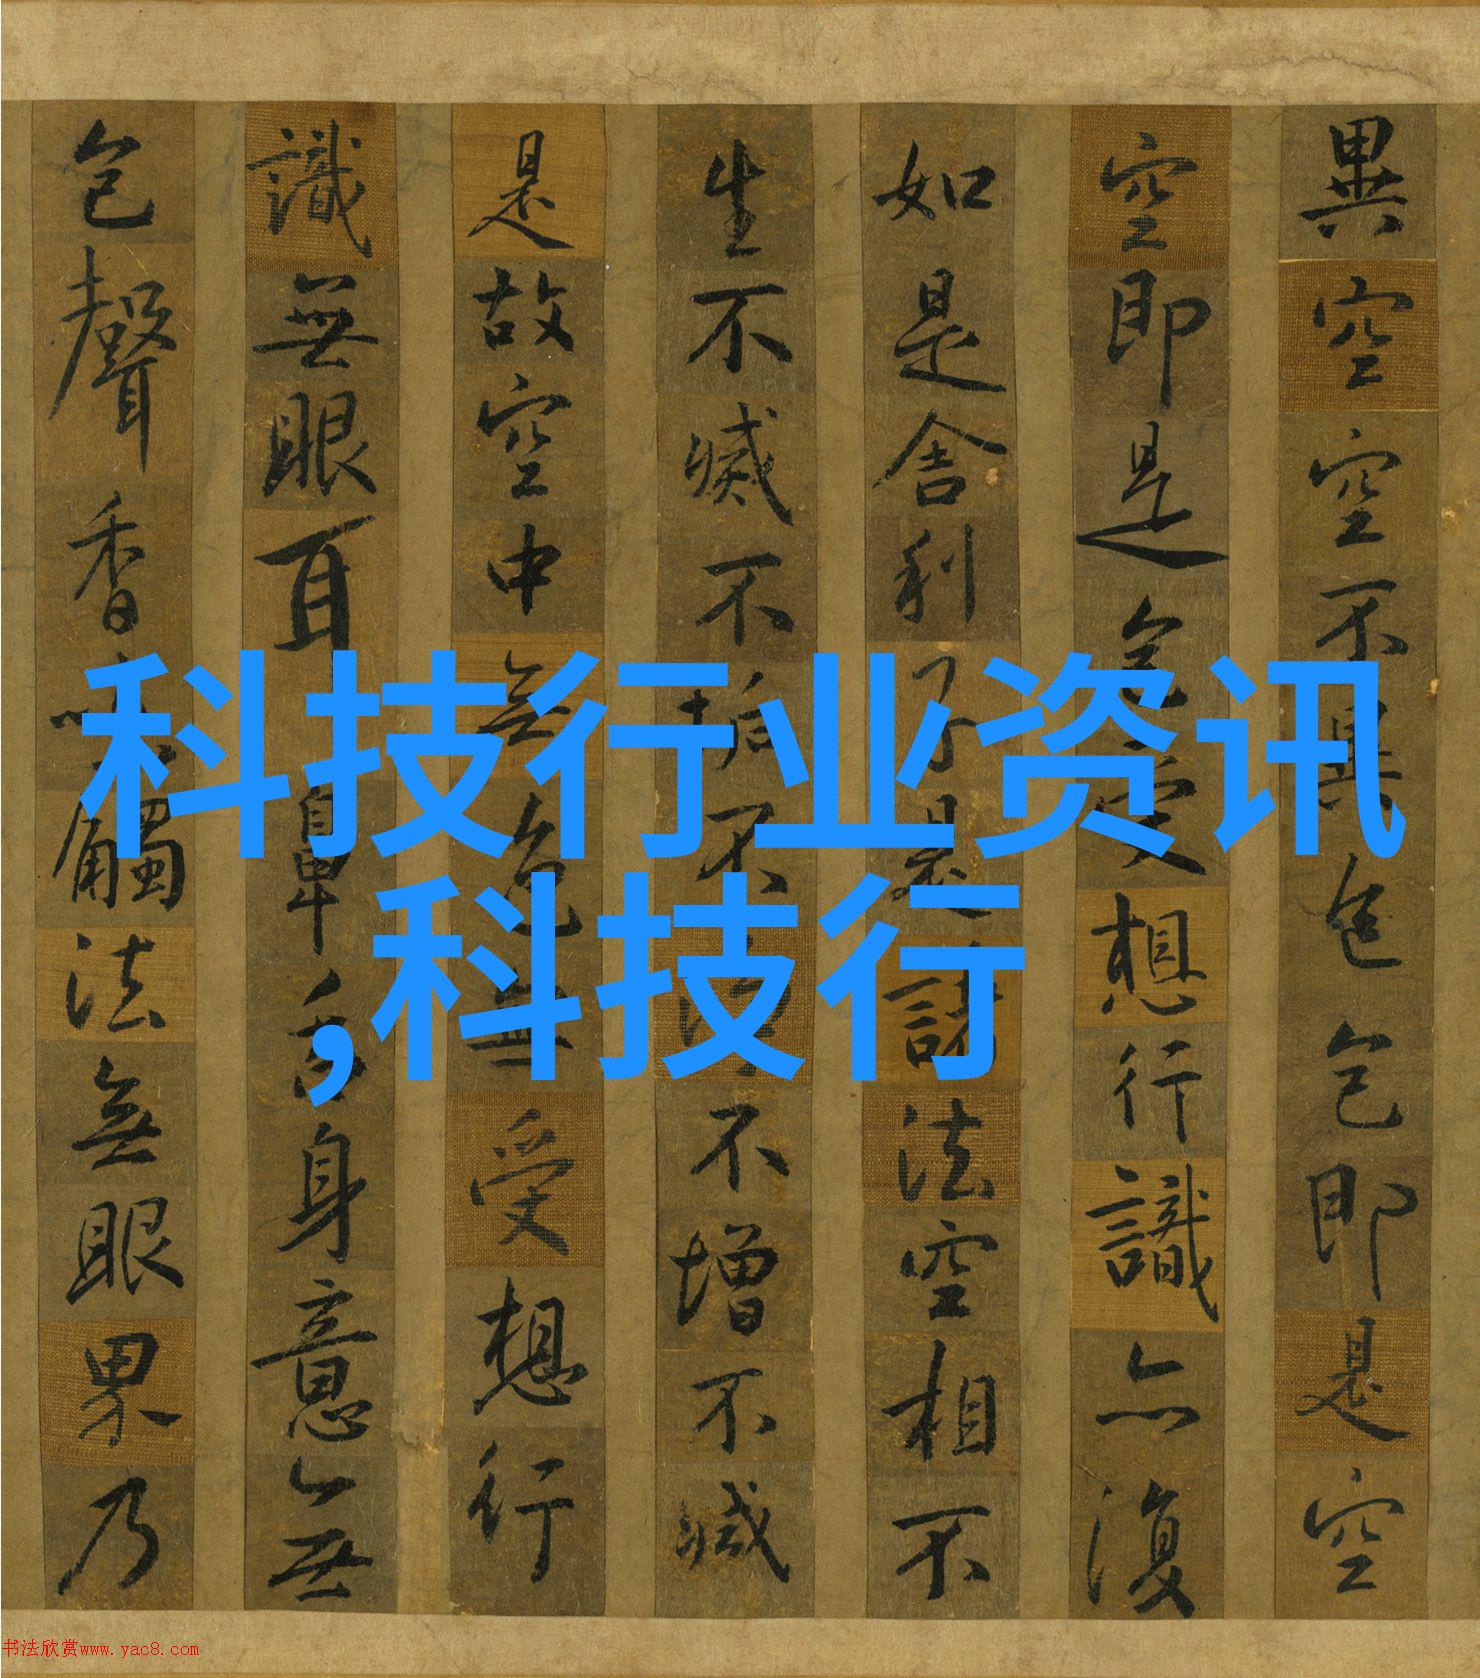 異空空不異色色即是空
空即是色受想行識亦復
如是舍利子是諸法空相不
生不滅不垢不淨不增不減
是故空中無色無受想行
識無眼耳鼻舌身意無
色聲香味觸法無眼界乃
科技行业资讯
,科技行
书法欣赏www.yac8.com